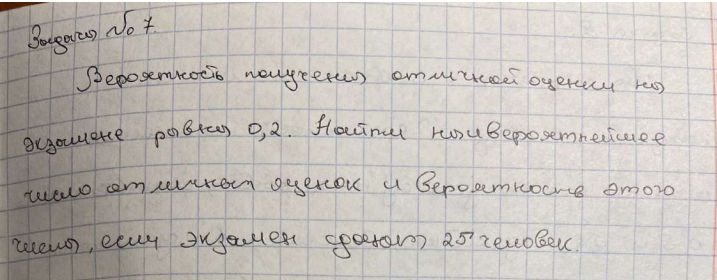 Задача №7.
Вероятность получения отличной оценки на
экзамене равна 0,2. Найти наивероятнейшее
число отличных оценок и вероятность этого
числа, если экзамен сдают 25 человек.